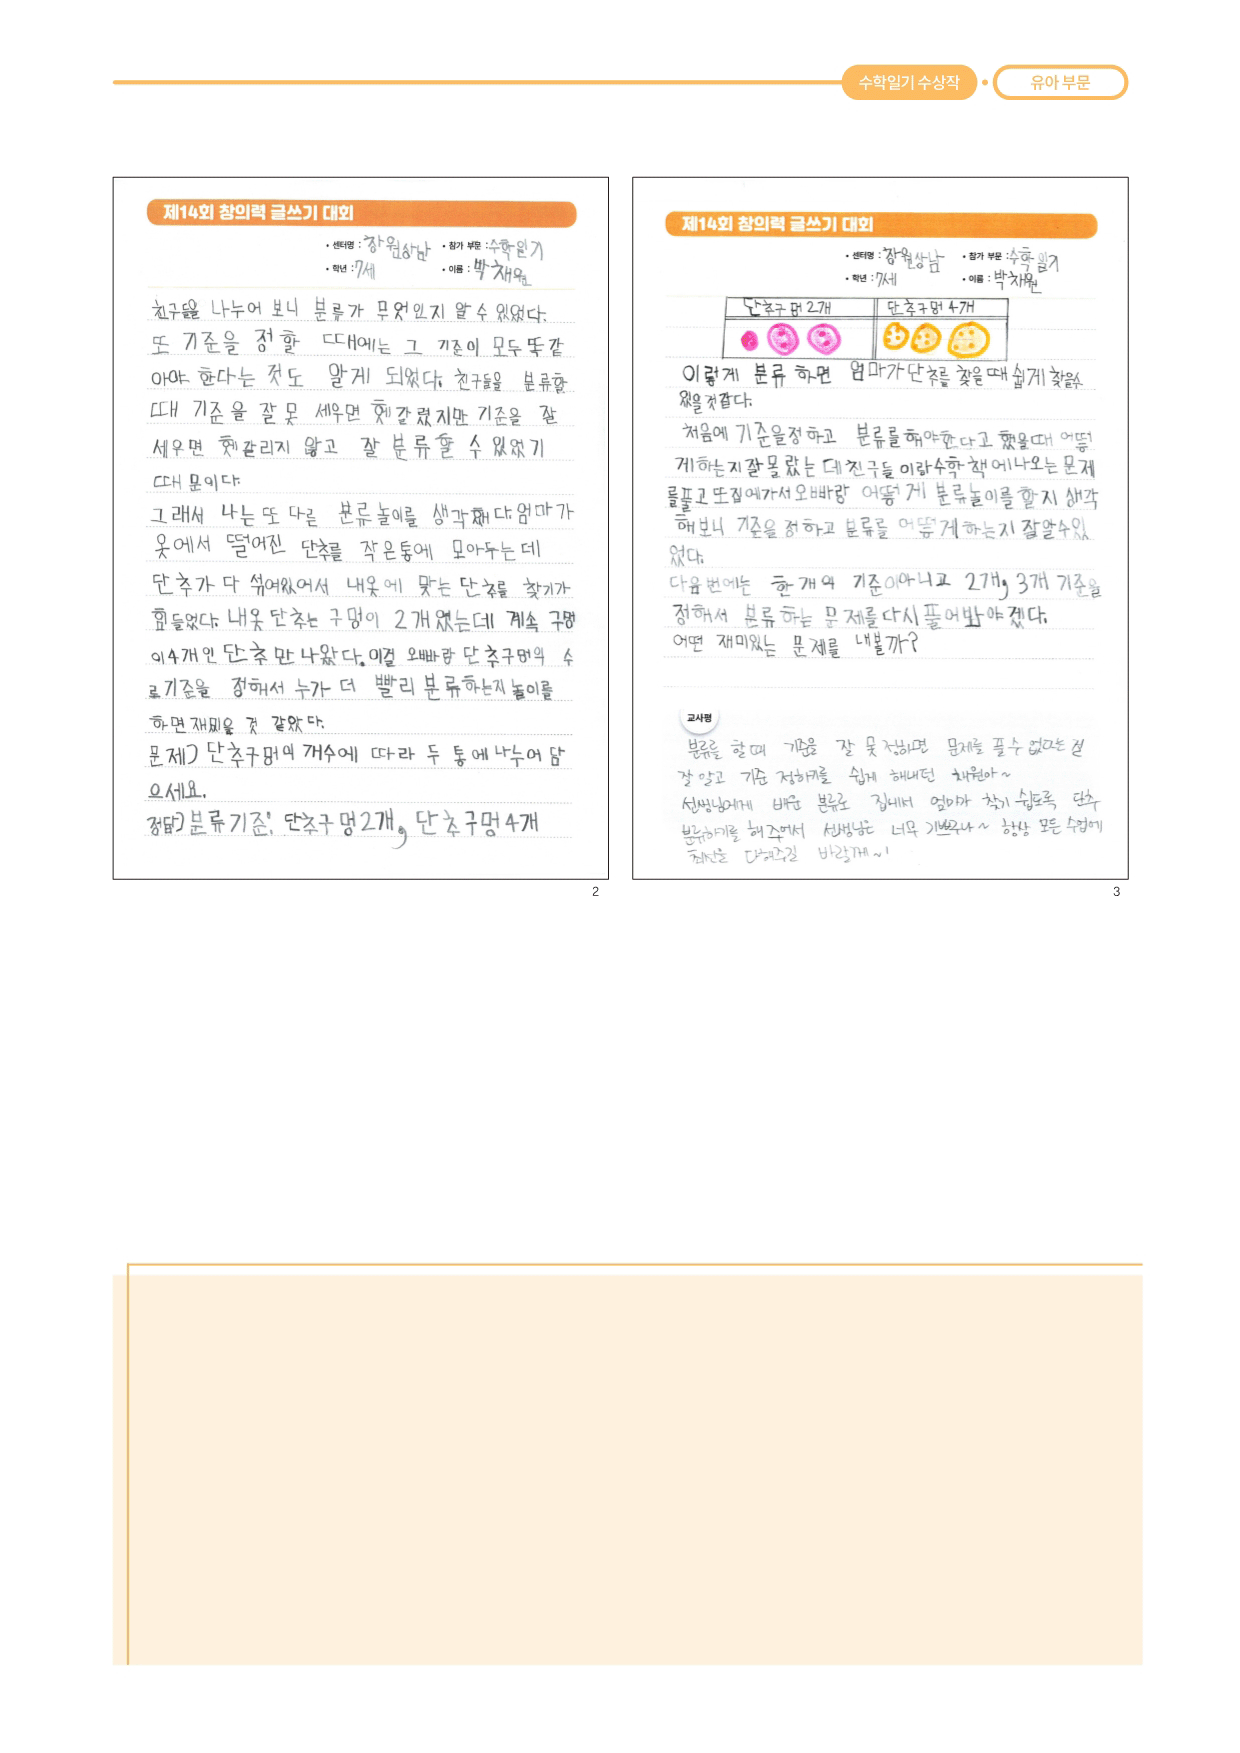 수학일기 수상작 • 유아 부문
제14회 창의력 글쓰기 대회
• 센터명 : 창원상남 • 참가 부문 : 수학일기
• 학년 : 7세 • 이름 : 박채원
친구들을 나누어 보니 분류가 무엇인지 알 수 있었다.
또 기준을 정할 때에는 그 기준이 모두 똑같
아야 한다는 것도 알게 되었다. 친구들을 분류할
때 기준을 잘 못 세우면 헷갈렸지만 기준을 잘
세우면 헷갈리지 않고 잘 분류할 수 있었기
때문이다.
그래서 나는 또 다른 분류놀이를 생각했다. 엄마가
옷에서 떨어진 단추를 작은통에 모아두는데
단추가 다 섞여있어서 내옷에 맞는 단추를 찾기가
힘들었다. 내옷 단추는 구멍이 2개였는데 계속 구멍
이4개인 단추만 나왔다. 이걸 오빠랑 단추구멍의 수
로기준을 정해서 누가 더 빨리 분류하는지 놀이를
하면 재밌을 것 같았다.
문제) 단추구멍의 개수에 따라 두 통에 나누어 담
으세요.
정답) 분류기준: 단추구멍2개, 단추구멍4개
2
제14회 창의력 글쓰기 대회
• 센터명 : 창원상남 • 참가 부문 : 수학일기
• 학년 : 7세 • 이름 : 박채원
단추구멍 2개 단추구멍 4개
이렇게 분류 하면 엄마가 단추를 찾을때 쉽게 찾을수
있을것같다.
처음에 기준을정하고 분류를해야한다고 했을때 어떻
게하는지잘몰랐는데친구들이랑수학책에나오는 문제
를풀고또집에가서오빠랑 어떻게 분류놀이를 할지 생각
해보니 기준을 정하고 분류를 어떻게하는지 잘알수있
었다.
다음번에는 한개의 기준이아니고 2개, 3개 기준을
정해서 분류하는 문제를다시풀어봐야겠다.
어떤 재미있는 문제를 내볼까?
교사평
분류를 할때 기준을 잘 못정하면 문제를 풀수 없다는걸
잘 알고 기준 정하기를 쉽게 해내던 채원아~
선생님에게 배운 분류로 집에서 엄마가 찾기 쉽도록 단추
분류하기를 해주어서 선생님은 너무 기쁘구나~ 항상 모든 수업에
최선을 다해주길 바랄께~!
3